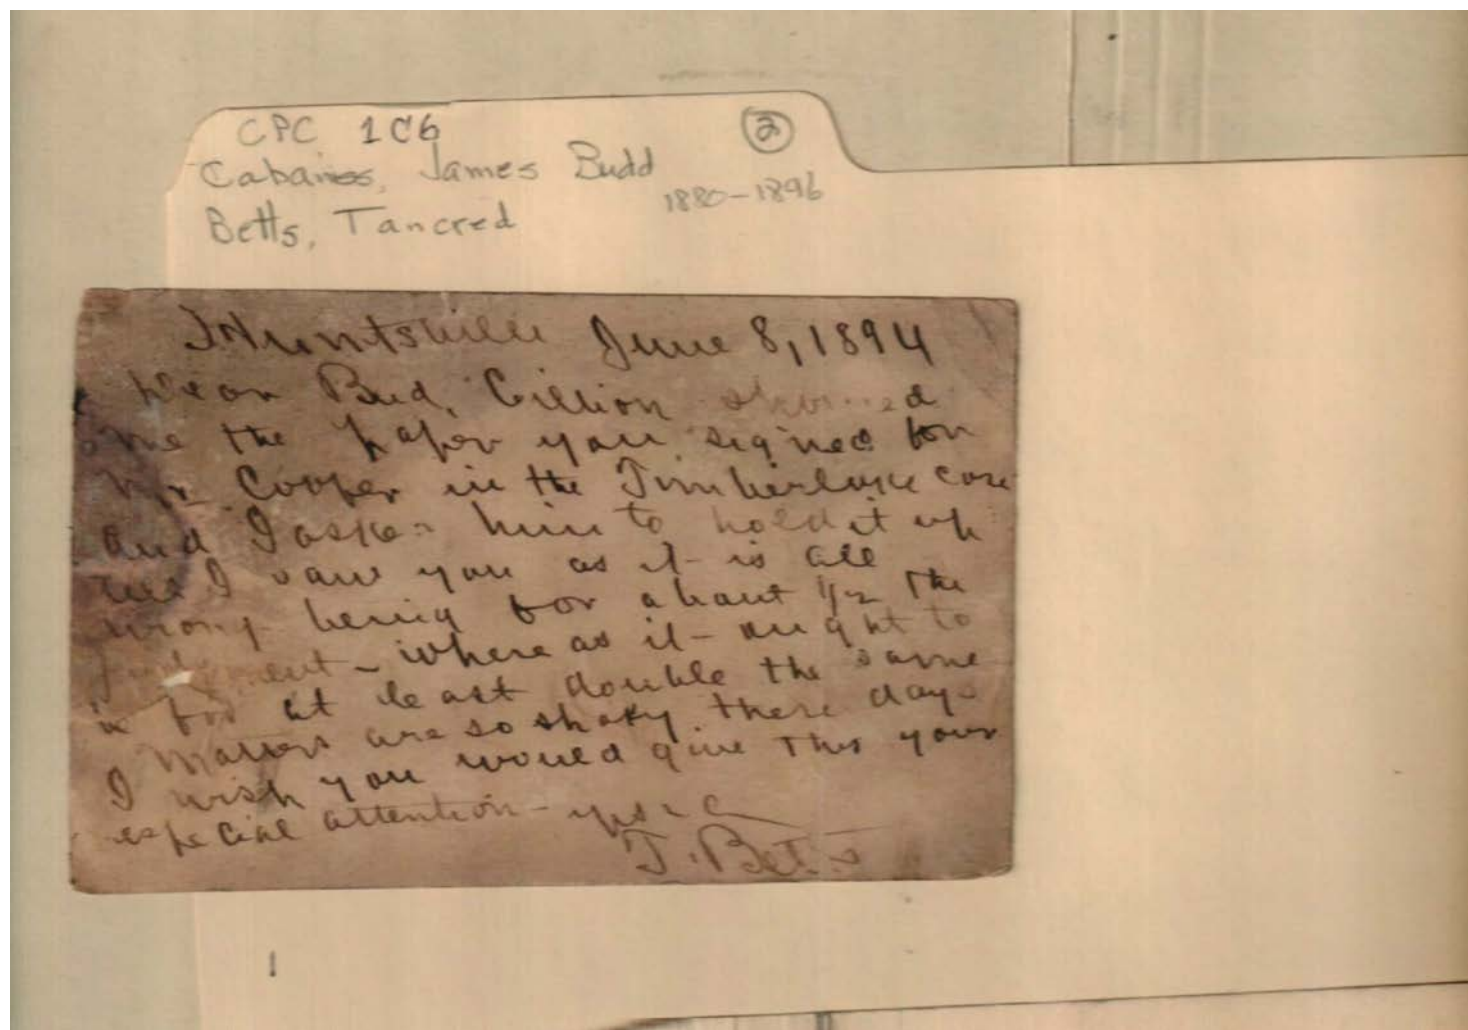 CPC 1C6
②
Cabaniss, James Budd
1880-1896
Betts, Tancred
Huntsville June 8, 1894
Dear Bud,
me the paper you signed for
Mr Cooper in the Timberlake case
and I asked him to hold it up
till I saw you as it is all
wrong being for about 1/2 the
judgment - where as it - aught to
be for at least double the same
Matters are so shaky these days
I wish you would give this your
especial attention -
T. Betts